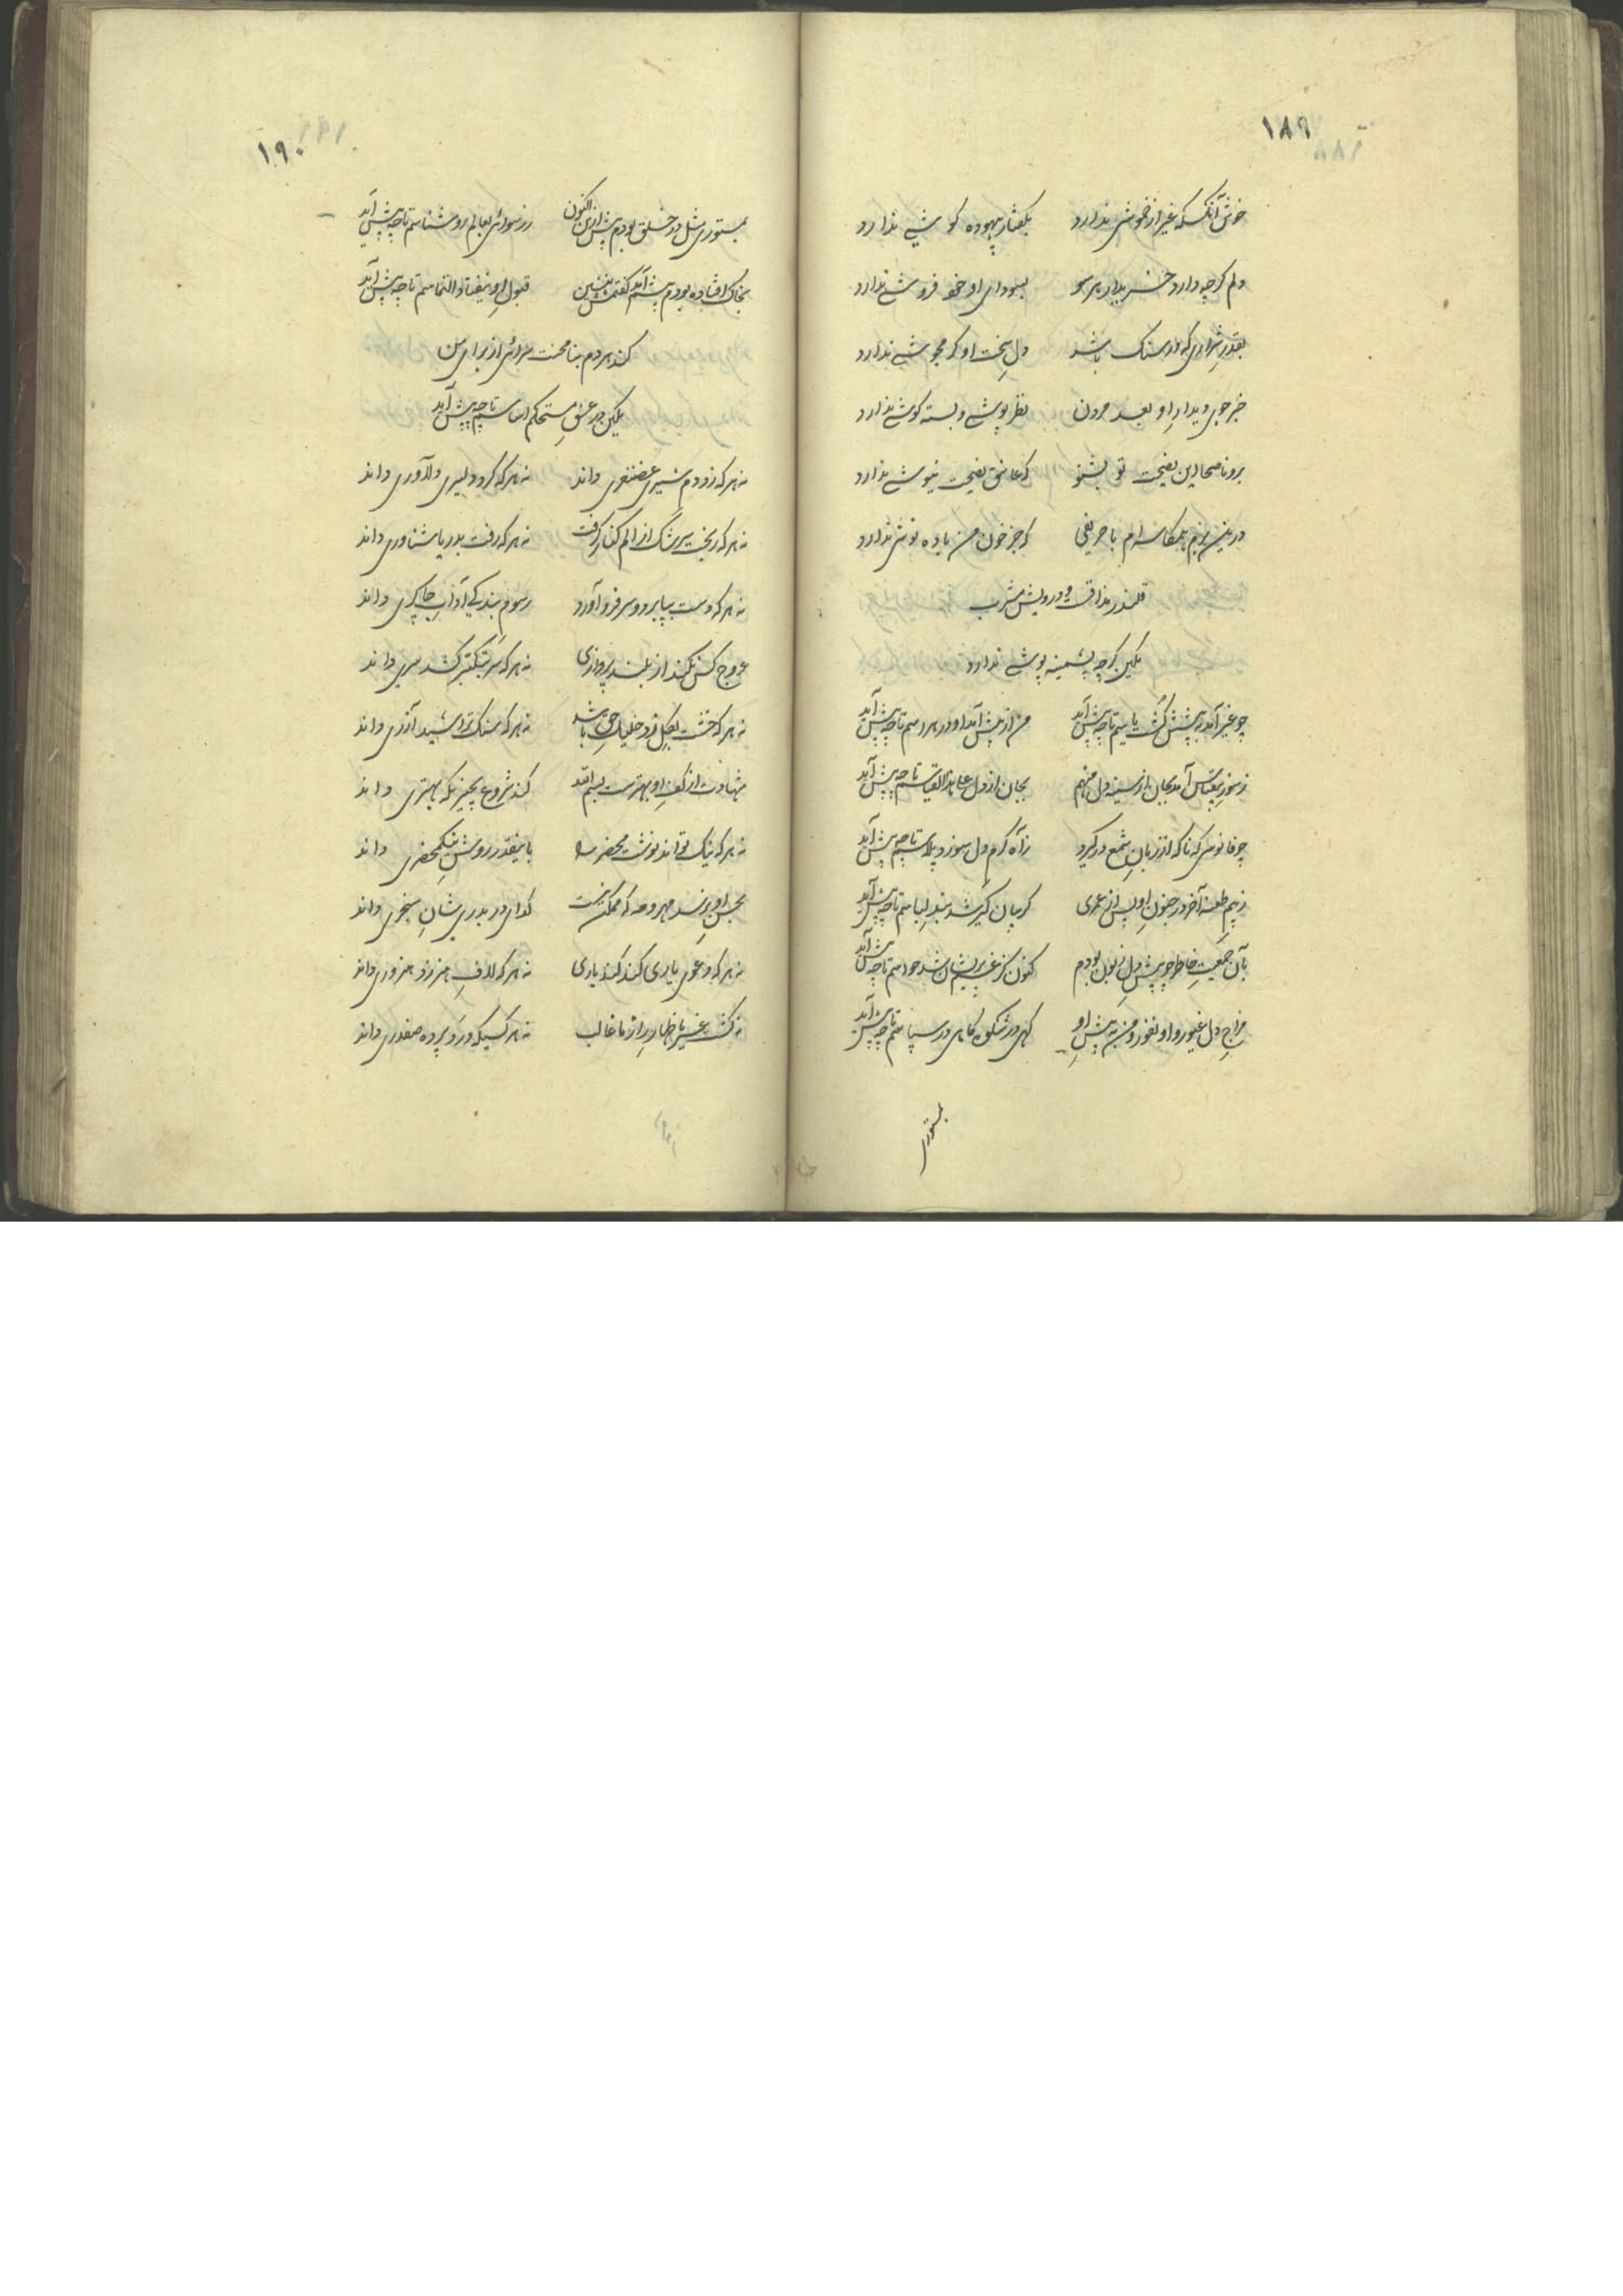 ۱۸۹
خوش آنکسکه غیر از خموشی ندارد بگفتار بیهوده کوشی ندارد
دلم کرچه دارد خریدار هر سو بسودای او خود فروشی ندارد
بقدر شراری که در سنک باشد دل سخت او کرمجوشی ندارد
خبر جوی دیدار او بعد مردن نظر پوشی و بسته کوشی ندارد
برو ناصحا این نصیحت تو بشنو که عاشق نصیحت نیوشی ندارد
درین بزم همکاسه ام با حریفی که جز خون من باده نوشی ندارد
قلندر مذاقست و درویش مشرب
یکین کرچه پشمینه پوشی ندارد
چو غیر آمد به پیشش کشت پاسم تا چه پیش آید من از پیش آمد او در هراسم تا چه پیش آید
ز سوز آمد بجان از سینه دل منهم بجان از دل تا چه پیش آید
چو فانوسی که ناکه از زبان شمع درکیرد ز آه کرم دل سوزد پلاسم تا چه پیش آید
ز بیم طعنه آخر در جنون او پس از عمری کریبان کیر شد بند لباسم تا چه پیش آید
بآن جمعیت خاطر چو پیش دل زبون بودم کنون کز غم پریشان شد حواسم تا چه پیش آید
مزاج دل غیور و او نفور و من به پیش او کهی در شکوه کاهی در سپاسم تا چه پیش آید
بمستوری
۱۹۰
بمستوری مثل در خلق بودم پیش ازین اکنون ز رسوائی بعالم روشناسم تا چه پیش آید
بخاک افتاده بودم پیشم آمد کفتمش بنشین قبول او نیفتاد التماسم تا چه پیش آید
کند هر دم بنا محنت سرائی از برای من
یکین در عشق مستحکم اساسم تا چه پیش آید
نه هر که زد دم شیری غضنفری داند نه هر که کرد دلیری دلاوری داند
نه هر که ریخت سرشک از الم کنار کرفت نه هر که رفت بدریا شناوری داند
نه هر که دست بپا برد و سر فرو آورد رسوم بندکی آداب چاکری داند
عروج کس نکند از بلند پروازی نه هر که سر بتکبر کشد سری داند
نه هر که خشت بکل زد خلیل حق باشد نه هر که سنک تراشید آزری داند
شهادت از کف او بهترست بسم الله کند شروع بچیزیکه بهتری داند
نه هر که نیک تواند نوشت محضر را باینقدر روش نیکمحضری داند
بحسن او نرسد مهر و مه که ممکن نیست کدای در بدری شان سنجری داند
نه هر که دعوی یاری کند کند یاری نه هر که لاف هنر زد هنروری داند
نه کشت غیر باظهار راز ما غالب نه هر کسیکه درد پرده صفدری داند